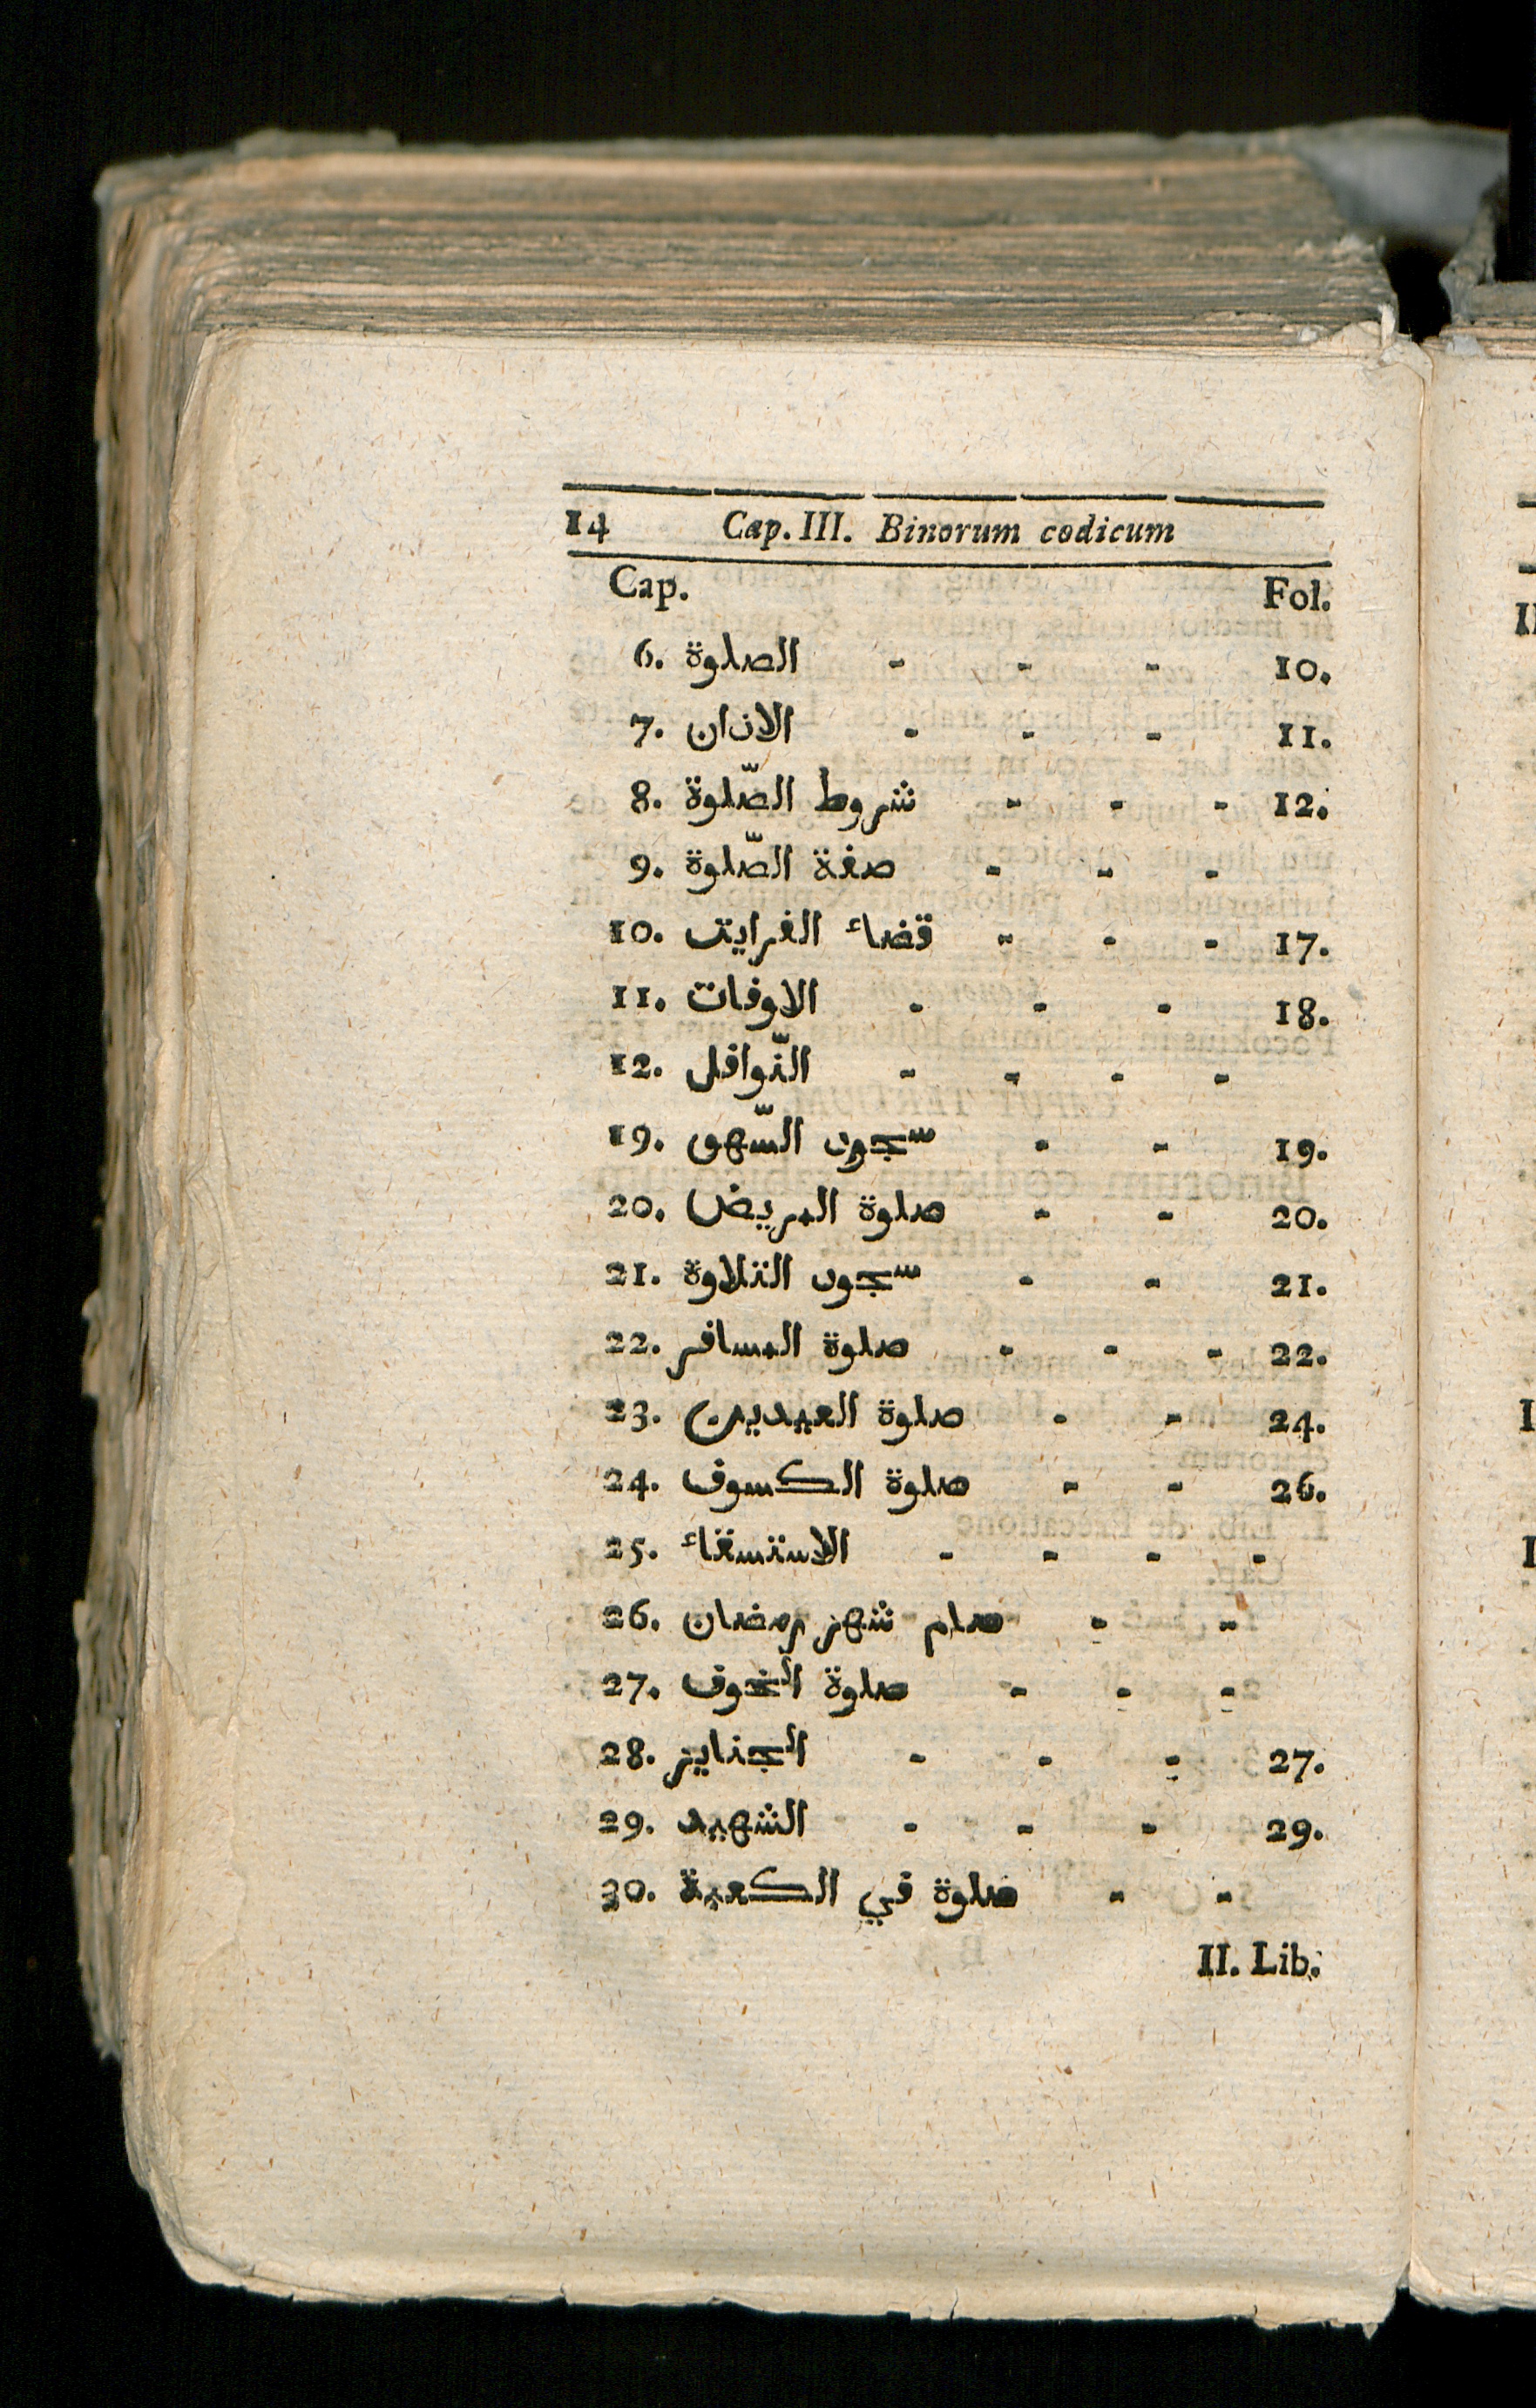 14 Cap. III. Binorum codicum
Cap. Fol.
6. الصلوة - - - 10.
7. الاذان - - - 11.
8. شروط الصّلوة - - - 12.
9. صفة الصّلوة - - -
10. قضاء الفرايت - - - 17.
11. الاوفات - - - 18.
12. النّوافل - - - -
19. سجود السّهو - - 19.
20. صلوة المريض - - 20.
21. سجود التلاوة - - 21.
22. صلوة المسافر - - - 22.
23. صلوة العيدين - - 24.
24. صلوة الكسوف - - 26.
25. الاستسقاء - - - -
26. صام شهر رمضان - -
27. صلوة الخوف - - -
28. الجنايز - - - 27.
29. الشهيد - - - 29.
30. صلوة في الكعبة - -
II. Lib.